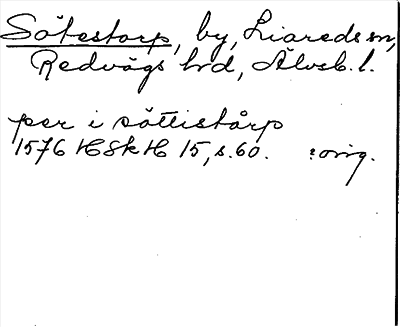 Sötestorp, by, Liareds sn,
Redvägs hd, Älvsb. l.
per i söttistårp
1576 HSkH 15, s. 60. :orig.